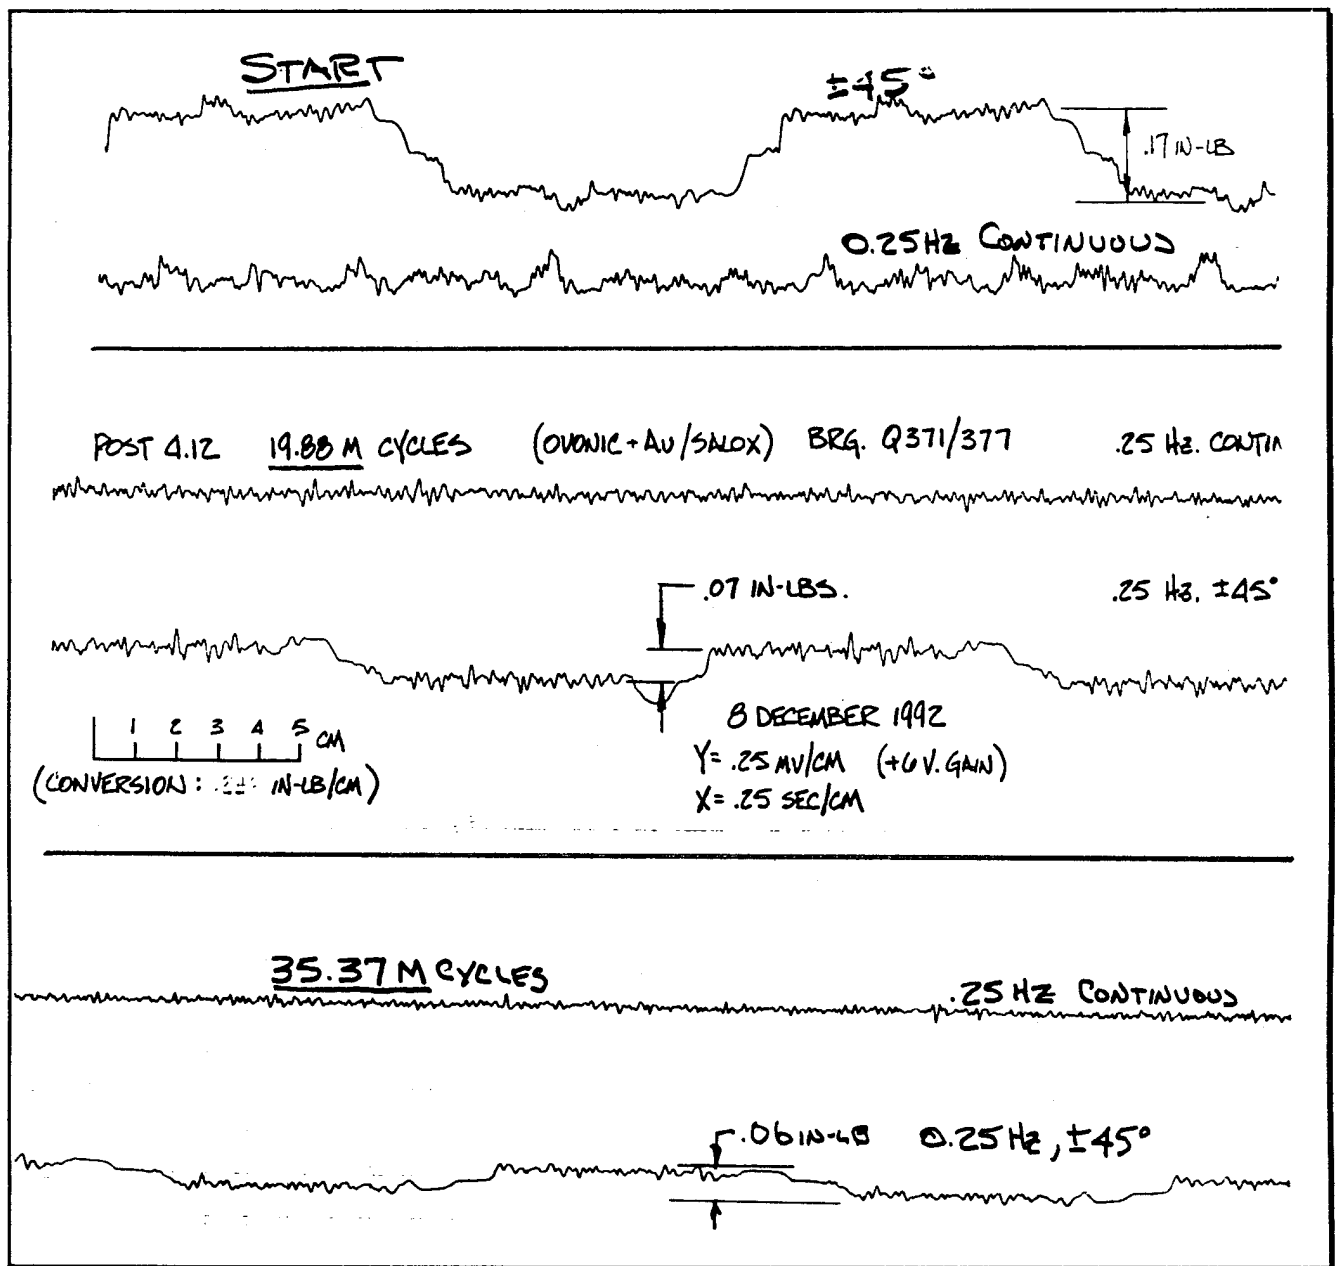 START
±45°
.17 IN-LB
0.25HZ CONTINUOUS
POST 4.12 19.88 M CYCLES (OVONIC + AU/SALOX) BRG. Q371/377 .25 HZ. CONTIN
.07 IN-LBS.
.25 HZ. ±45°
1 2 3 4 5 CM
(CONVERSION: IN-LB/CM)
8 DECEMBER 1992
Y= .25 MV/CM (+6 V. GAIN)
X= .25 SEC/CM
35.37 M CYCLES
.25 HZ CONTINUOUS
.06 IN-LB 0.25 HZ, ±45°